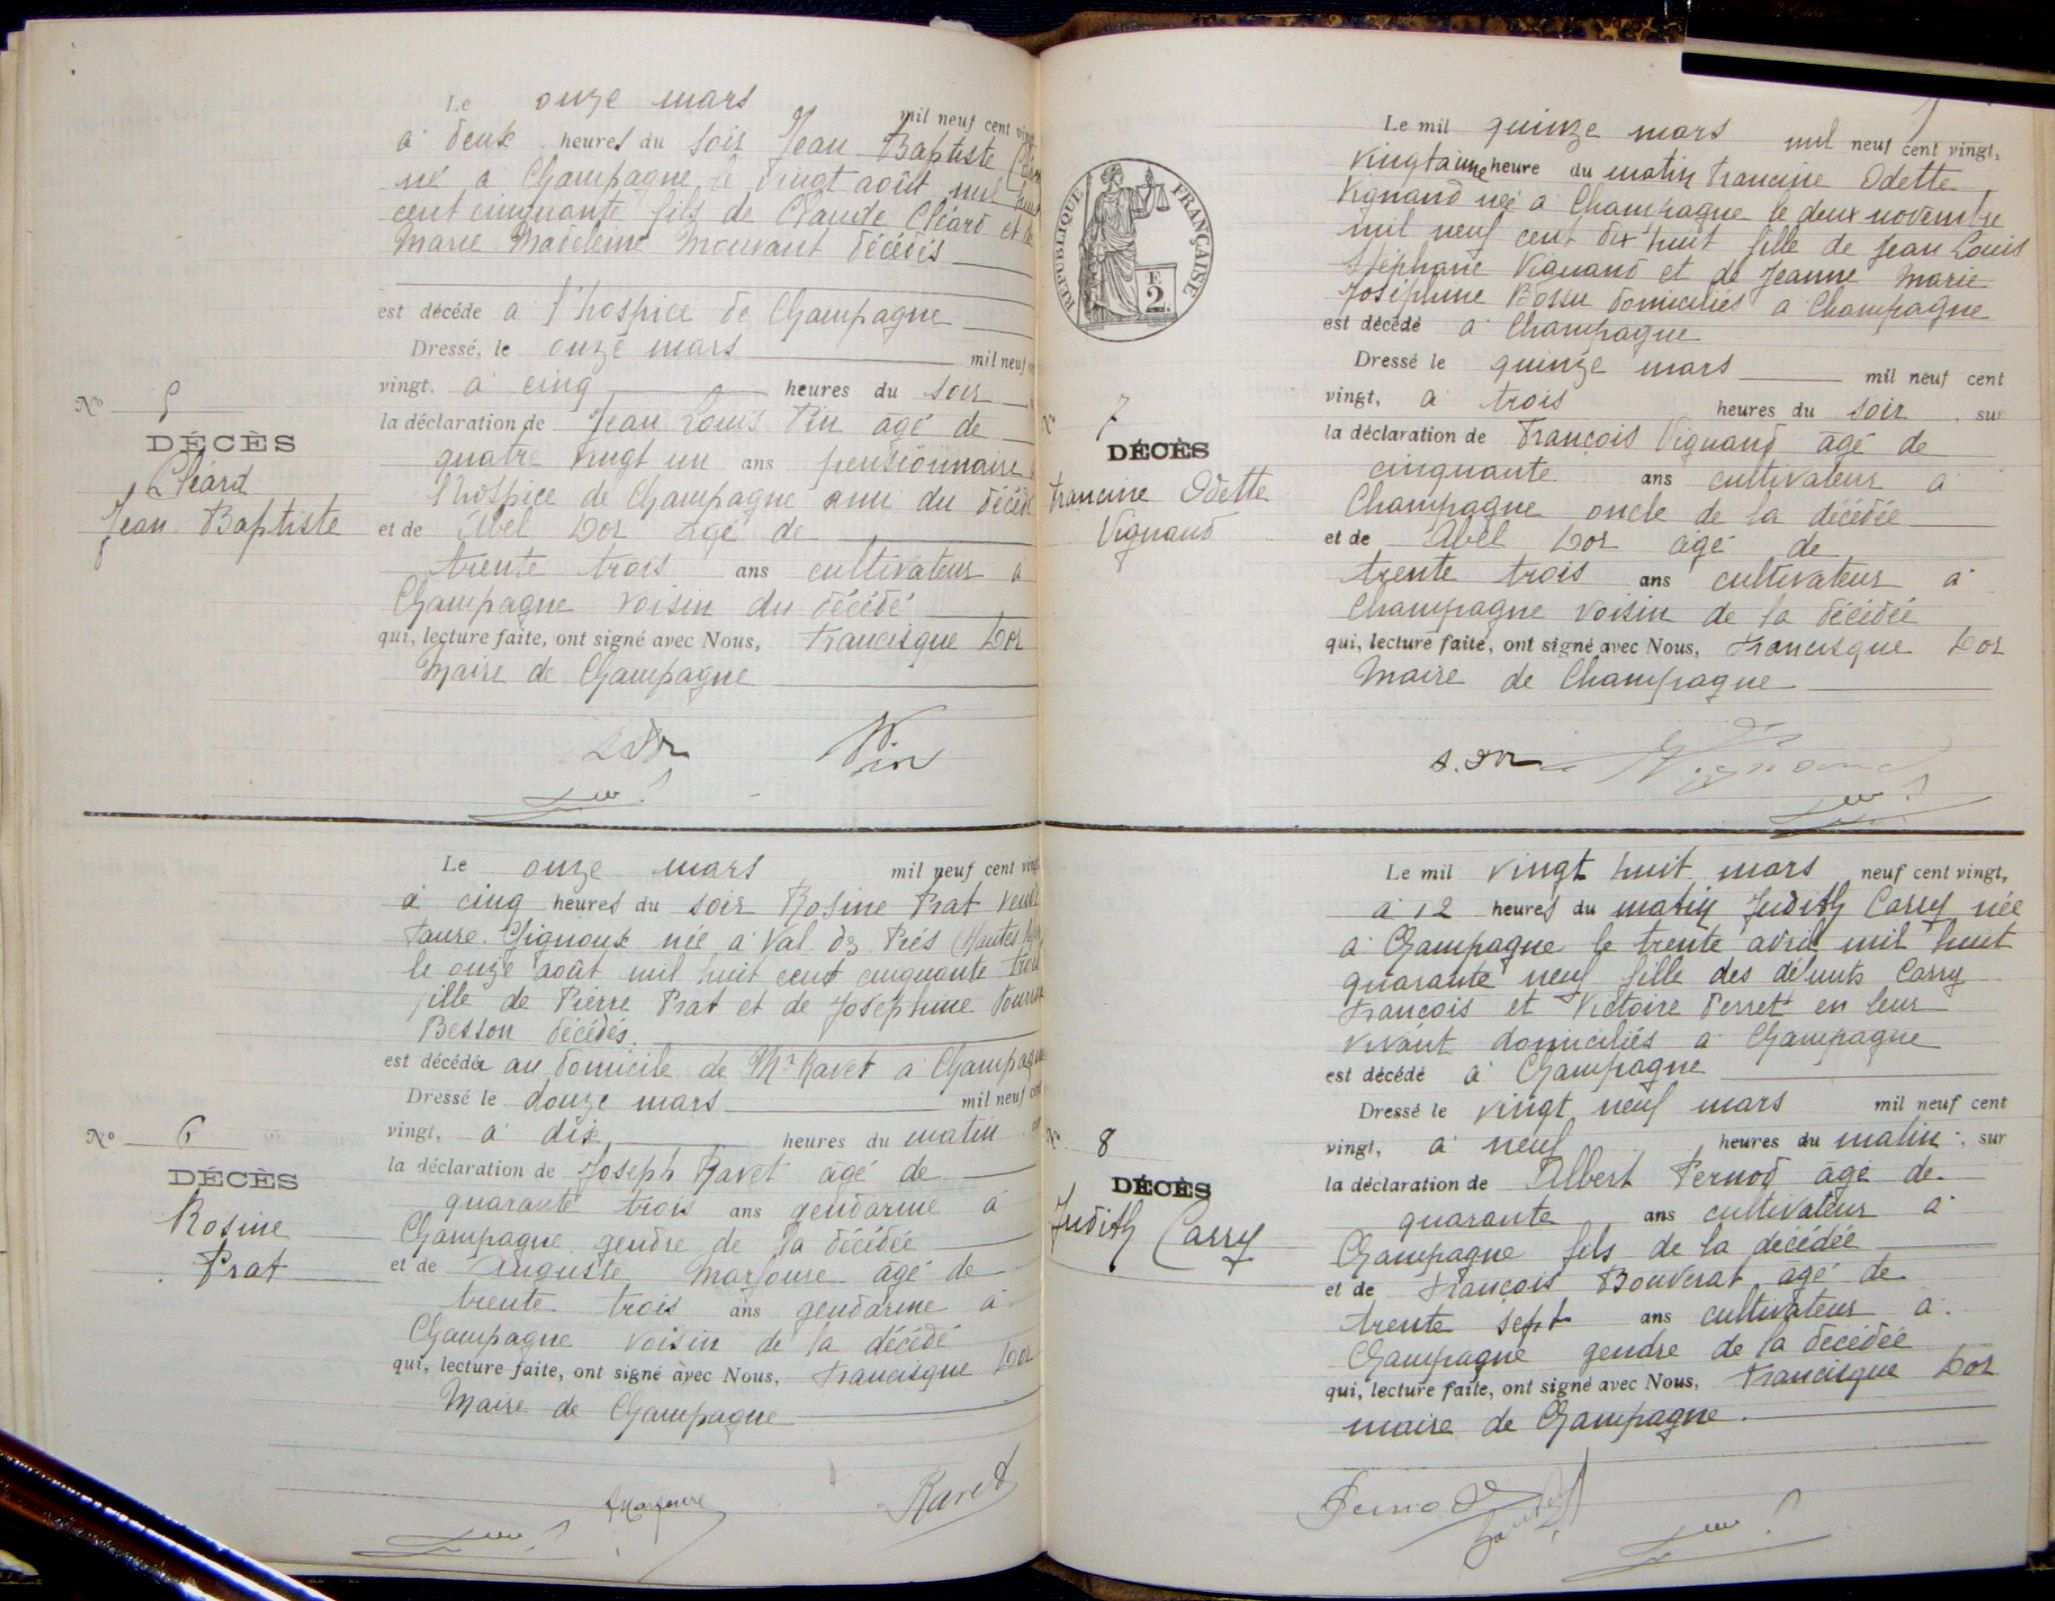 Le onze mars mil neuf cent vingt
à deux heures du soir Jean Baptiste
né à Champagne le vingt août mil huit
cent cinquante fils de Claude Cléard et de
Marie Madeleine Mouvant décédés
est décédé a l'hospice de Champagne
Dressé, le onze mars mil neuf
vingt. à cinq heures du soir
la déclaration de Jean Louis Pin agé de
quatre vingt un ans pensionnaire
l'hospice de Champagne ami du décédé
et de Abel Dor agé de
trente trois ans cultivateur à
Champagne voisin du décédé
qui, lecture faite, ont signé avec Nous, Francisque Dor
Maire de Champagne
Pin
No 5
DÉCÈS
Cléard
Jean Baptiste
Le onze mars mil neuf cent vingt
à cinq heures du soir Rosine Prat veuve
Faure. Gignoux née à Val des Prés (Hautes
le onze août mil huit cent cinquante trois
fille de Pierre Prat et de Joséphine
Besson décédés.
est décédée au domicile de Mr Ravet a Champagne
Dressé le douze mars mil neuf cent
vingt, à dix heures du matin
la déclaration de Joseph Ravet âgé de
quarante trois ans gendarme à
Champagne gendre de la décédée
et de Auguste Marfoure agé de
trente trois ans gendarme à
Champagne voisin de la décédé
qui, lecture faite, ont signé avec Nous, Francisque Dor
Maire de Champagne
Ravet
No 6
DÉCÈS
Rosine
Prat
RÉPUBLIQUE FRANÇAISE
F
2
Le mil quinze mars mil neuf cent vingt,
heure du matin Francine Odette
Vignand née à Champagne le deux novembre
mil neuf cent dix huit fille de Jean Louis
Stéphane Vignand et de Jeanne Marie
Joséphine Bossu domiciliés à Champagne
est décédé à Champagne
Dressé le quinze mars mil neuf cent
vingt, à trois heures du soir. sur
la déclaration de François Vignand âgé de
cinquante ans cultivateur à
Champagne oncle de la décédée
et de Abel Dor agé de
trente trois ans cultivateur à
Champagne voisin de la décédée
qui, lecture faite, ont signé avec Nous, Francisque Dor
Maire de Champagne
Vignand
7
DÉCÈS
Francine Odette
Vignand
Le mil vingt huit mars neuf cent vingt,
à 12 heures du matin Judith Carry née
à Champagne le trente avril mil huit
quarante neuf fille des défunts Carry
François et Victoire Perret en leur
vivant domiciliés à Champagne
est décédé à Champagne
Dressé le vingt neuf mars mil neuf cent
vingt, à neuf heures du matin, sur
la déclaration de Albert Pernod âgé de
quarante ans cultivateur à
Champagne fils de la décédée
et de François Bouverat agé de
trente sept ans cultivateur à
Champagne gendre de la décédée
qui, lecture faite, ont signé avec Nous, Francisque Dor
maire de Champagne.
Pernod
No 8
DÉCÈS
Judith Carry